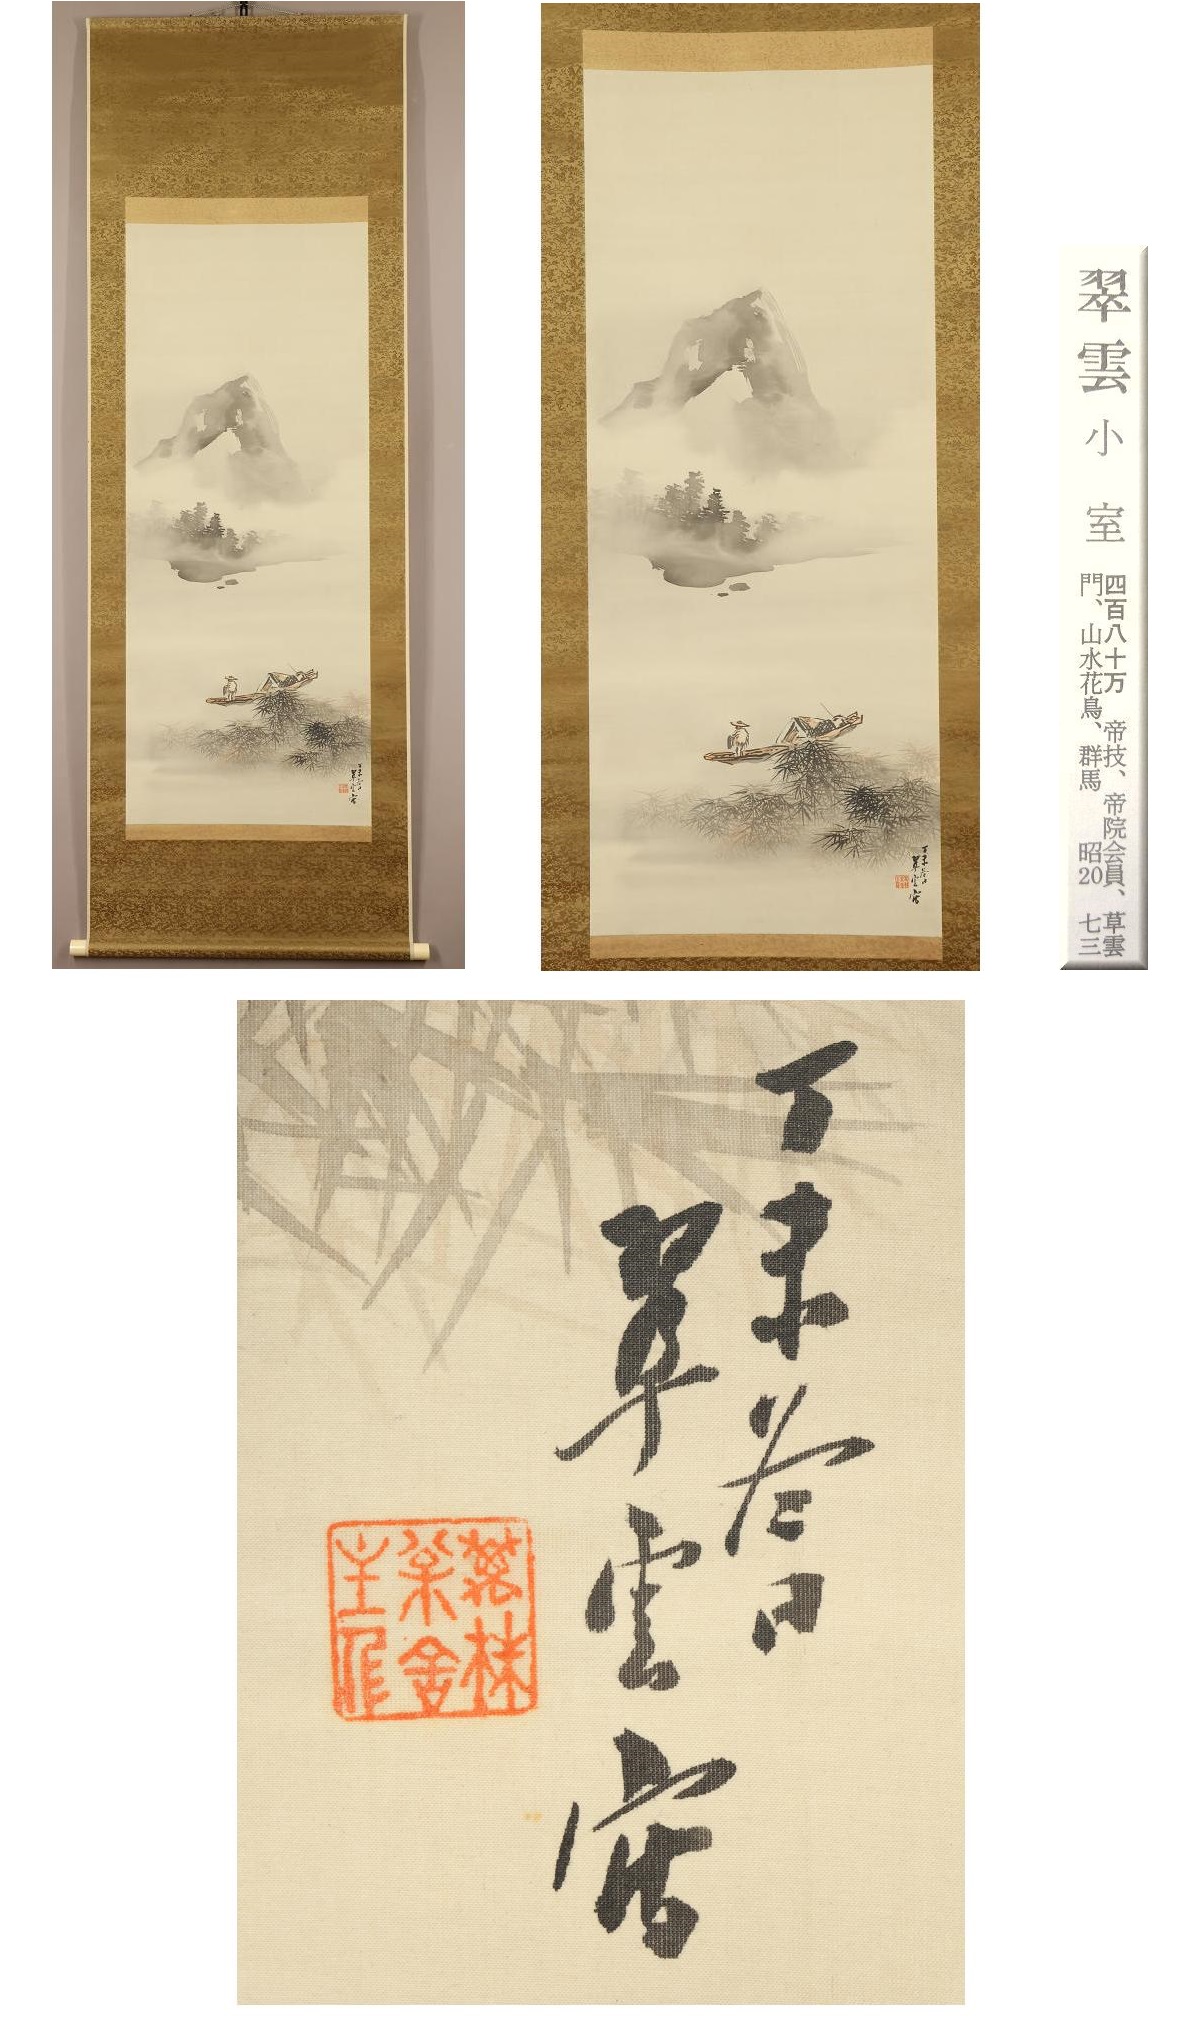 翠雲 小室 四百八十万 帝技、帝院会員、草雲
門、山水花鳥、群馬 昭20 七三
丁未春日
翠雲寫